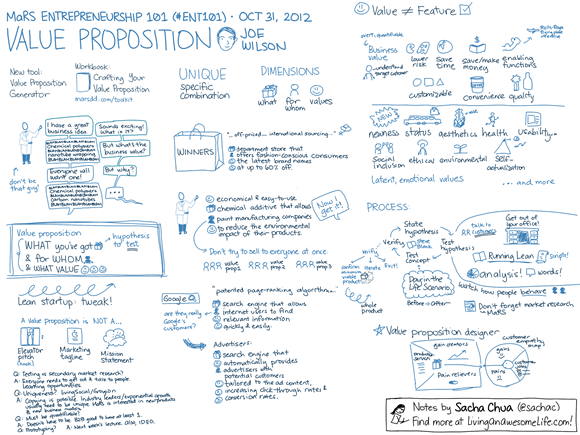 MaRS ENTREPRENEURSHIP 101 (#ENT101) · OCT 31, 2012
VALUE PROPOSITION
JOE
WILSON
New tool:
Value Proposition
Generator
Workbook:
Crafting Your
Value Proposition
marsdd.com/toolkit
UNIQUE
specific
combination
DIMENSIONS
what
for
whom
values
I have a great
business idea
Sounds exciting!
What is it?
Chemical polymers
But what's the
business value?
Everyone will
want one!
But why?
Chemical polymers
Carbon nanotube
don't be
that guy!
WINNERS
"...off-priced... international sourcing..."
department store that
offers fashion-conscious consumers
the latest brand names
at up to 60% off.
Value proposition
WHAT you've got
& for WHOM
& WHAT VALUE
hypothesis
to test
economical & easy-to-use
chemical additive that allows
paint manufacturing companies
to reduce the environmental
impact of their products.
Now I
get it!
Don't try to sell to everyone at once.
value
prop 1
value
prop 2
value
prop 3
Lean startup: tweak!
A VALUE PROPOSITION IS NOT A...
Elevator
pitch
(hook)
Marketing
tagline
Mission
Statement
Q: Testing vs secondary market research?
A: Everyone needs to get out & talk to people.
Learning opportunities
Q: Uniqueness? LivingSocial/Groupon
Q: Must be quantifiable?
Q: Prototyping?
A: Next week's lecture. Also, IDEO.
Google
are they really
Google's
customers?
"patented page-ranking algorithm..."
search engine that allows
internet users to find
relevant information
quickly & easily.
Advertisers:
search engine that
automatically provides
advertisers with
potential customers
tailored to the ad content,
increasing click-through rates &
conversion rates.
Value ≠ Feature
Business
value
understand
target customer
lower
risk
save
time
save/make
money
enabling
functions
customizable
convenience
quality
newness
status
aesthetics
health
Usability...
social
inclusion
ethical
environmental
self-
actualization
Latent, emotional values
... and more
PROCESS:
State
hypothesis
Verify
Test
hypothesis
Test
concept
talk to
customers
Get out of
your office!
Running Lean
simple!
analysis!
words!
watch how people behave
Don't forget market research
- MaRS
Day in the
Life Scenario
Before → After
whole
product
Value proposition designer
gain creators
Pain relievers
customer
empathy
map
Notes by Sacha Chua (@sachac)
Find more at LivingAnAwesomeLife.com!